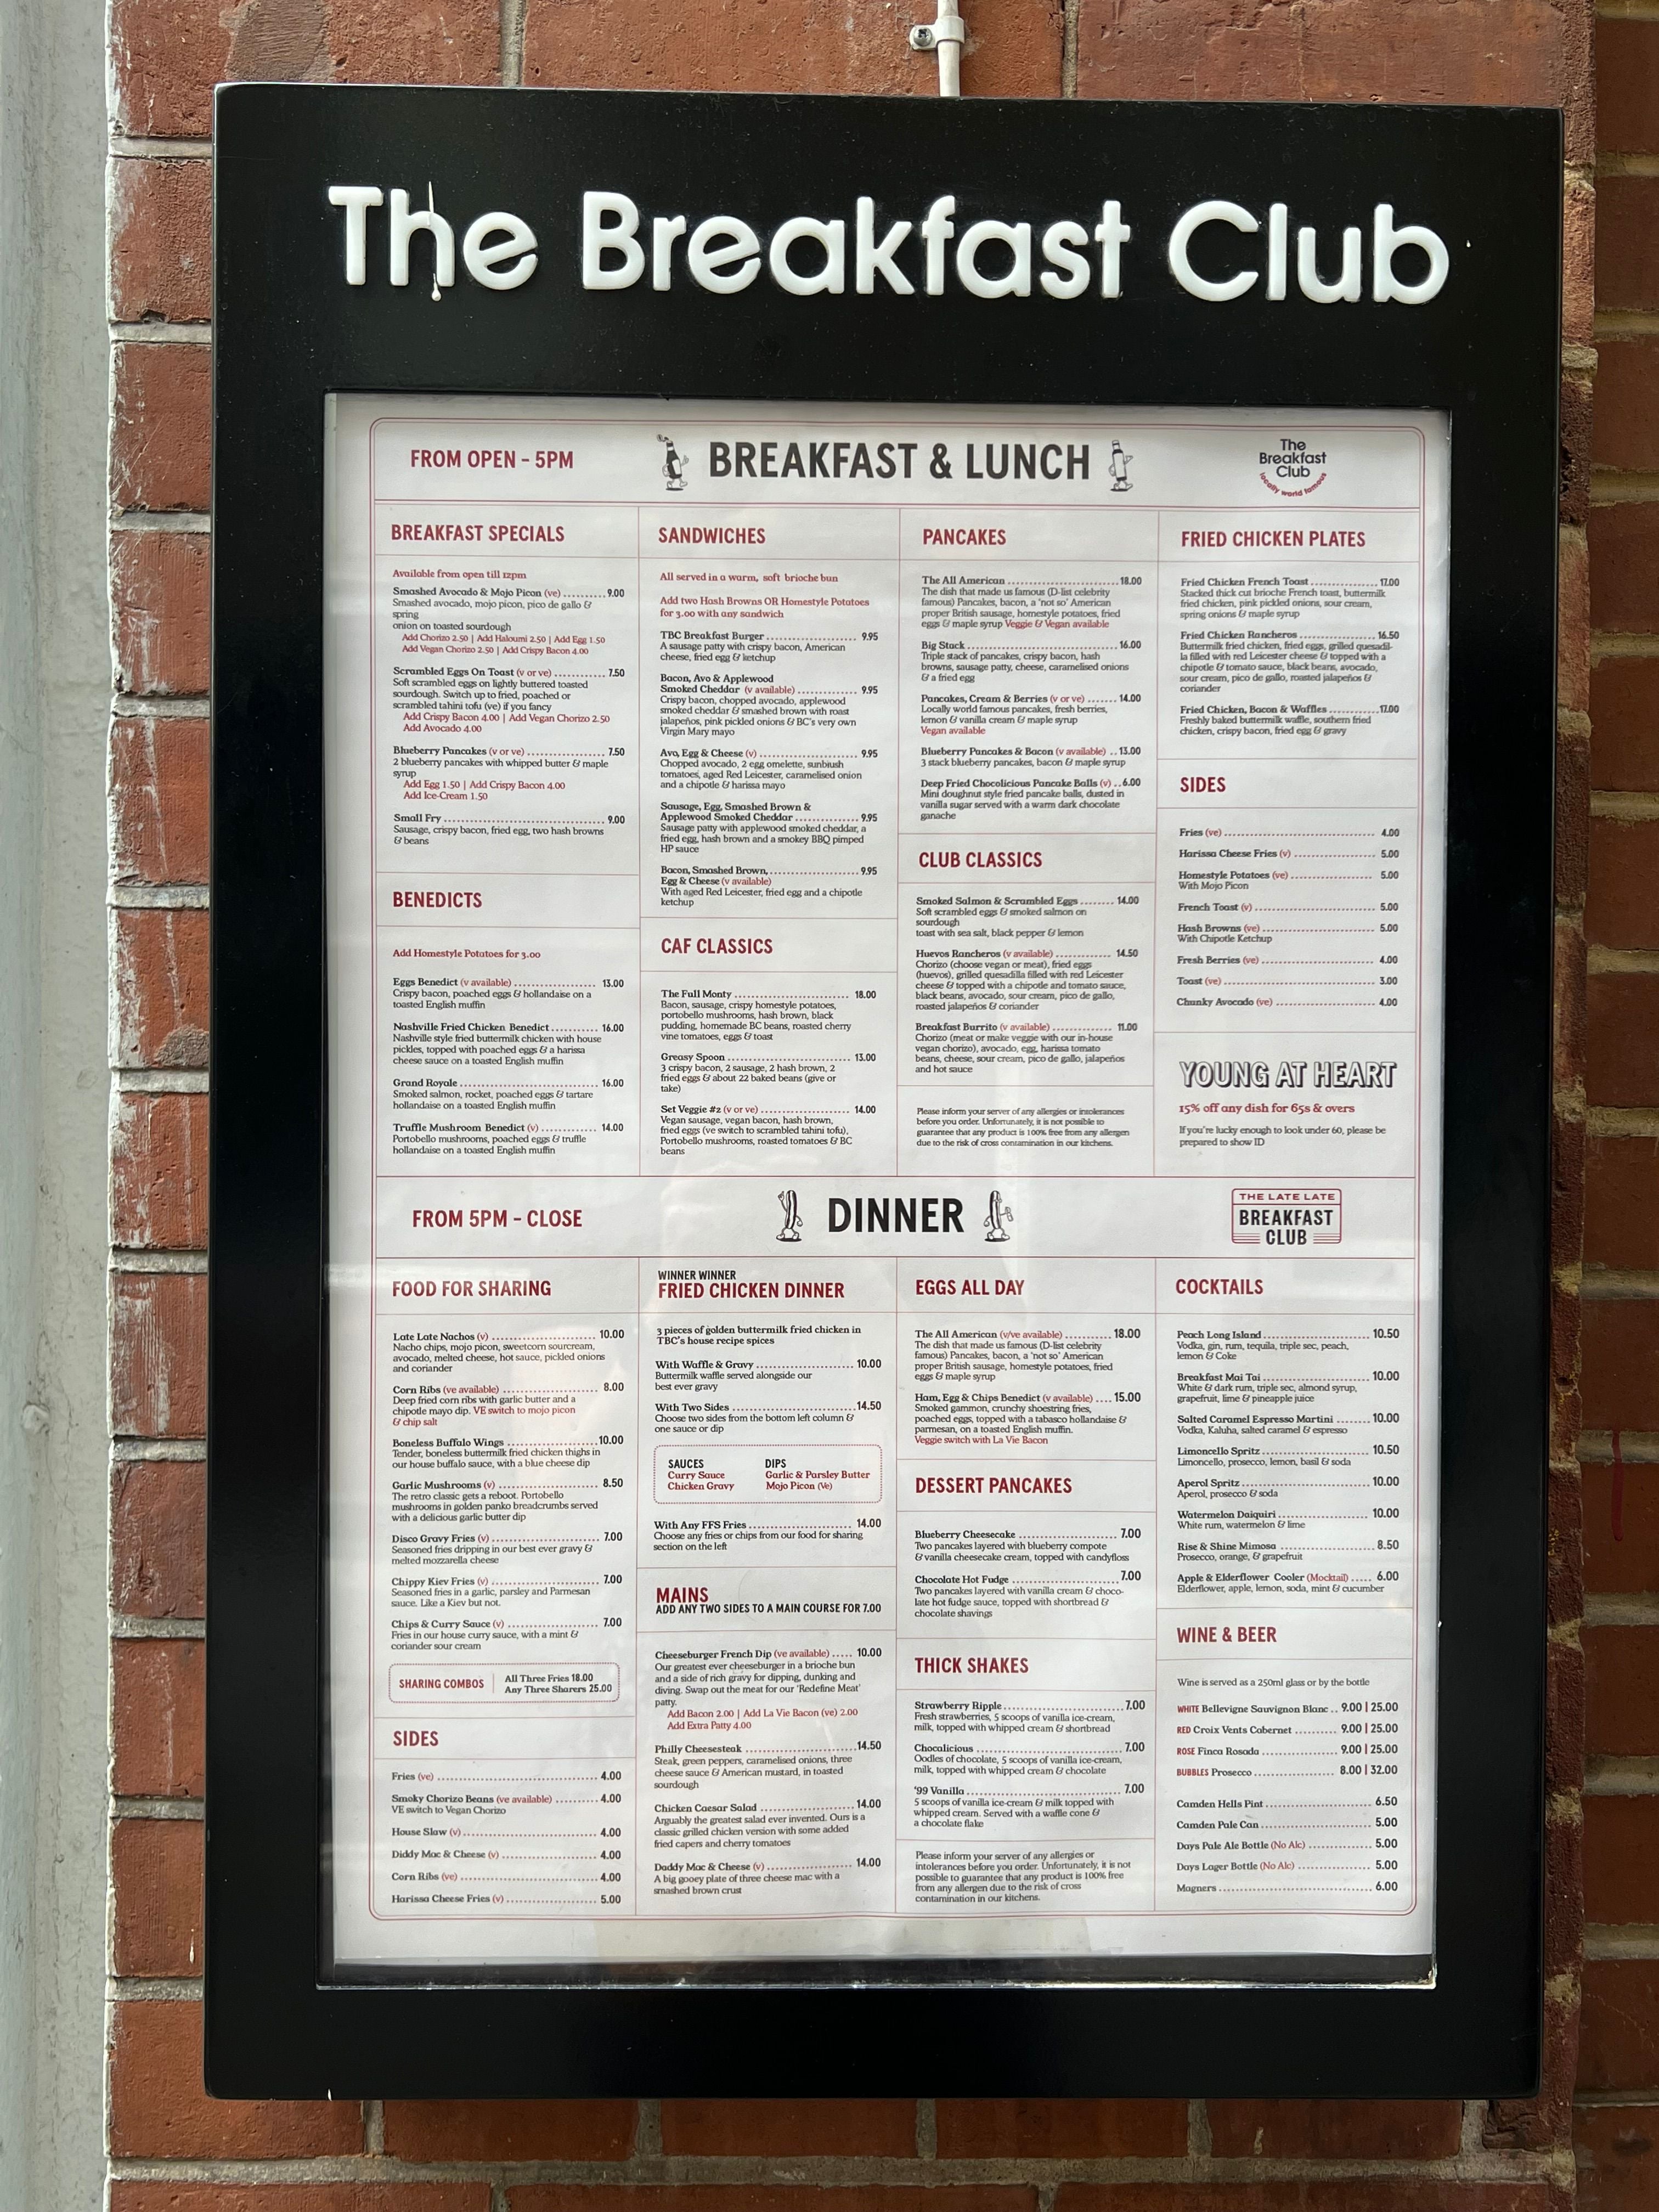 The Breakfast Club
FROM OPEN - 5PM
BREAKFAST & LUNCH
The
Breakfast
Club
locally world famous
BREAKFAST SPECIALS
Available from open till 12pm
Smashed Avocado & Mojo Picon (ve) .......... 9.00
Smashed avocado, mojo picon, pico de gallo &
spring
onion on toasted sourdough
Add Chorizo 2.50 | Add Haloumi 2.50 | Add Egg 1.50
Add Vegan Chorizo 2.50 | Add Crispy Bacon 4.00
Scrambled Eggs On Toast (v or ve) .......... 7.50
Soft scrambled eggs on lightly buttered toasted
sourdough. Switch up to fried, poached or
scrambled tahini tofu (ve) if you fancy
Add Crispy Bacon 4.00 | Add Vegan Chorizo 2.50
Add Avocado 4.00
Blueberry Pancakes (v or ve) .......... 7.50
2 blueberry pancakes with whipped butter & maple
syrup
Add Egg 1.50 | Add Crispy Bacon 4.00
Add Ice-Cream 1.50
Small Fry .......... 9.00
Sausage, crispy bacon, fried egg, two hash browns
& beans
BENEDICTS
Add Homestyle Potatoes for 3.00
Eggs Benedict (v available) .......... 13.00
Crispy bacon, poached eggs & hollandaise on a
toasted English muffin
Nashville Fried Chicken Benedict .......... 16.00
Nashville style fried buttermilk chicken with house
pickles, topped with poached eggs & a harissa
cheese sauce on a toasted English muffin
Grand Royale .......... 16.00
Smoked salmon, rocket, poached eggs & tartare
hollandaise on a toasted English muffin
Truffle Mushroom Benedict (v) .......... 14.00
Portobello mushrooms, poached eggs & truffle
hollandaise on a toasted English muffin
SANDWICHES
All served in a warm, soft brioche bun
Add two Hash Browns OR Homestyle Potatoes
for 3.00 with any sandwich
TBC Breakfast Burger .......... 9.95
A sausage patty with crispy bacon, American
cheese, fried egg & ketchup
Bacon, Avo & Applewood
Smoked Cheddar (v available) .......... 9.95
Crispy bacon, chopped avocado, applewood
smoked cheddar & smashed brown with roast
jalapeños, pink pickled onions & BC's very own
Virgin Mary mayo
Avo, Egg & Cheese (v) .......... 9.95
Chopped avocado, 2 egg omelette, sunblush
tomatoes, aged Red Leicester, caramelised onion
and a chipotle & harissa mayo
Sausage, Egg, Smashed Brown &
Applewood Smoked Cheddar .......... 9.95
Sausage patty with applewood smoked cheddar, a
fried egg, hash brown and a smokey BBQ pimped
HP sauce
Bacon, Smashed Brown, .......... 9.95
Egg & Cheese (v available)
With aged Red Leicester, fried egg and a chipotle
ketchup
CAF CLASSICS
The Full Monty .......... 18.00
Bacon, sausage, crispy homestyle potatoes,
portobello mushrooms, hash brown, black
pudding, homemade BC beans, roasted cherry
vine tomatoes, eggs & toast
Greasy Spoon .......... 13.00
3 crispy bacon, 2 sausage, 2 hash brown, 2
fried eggs & about 22 baked beans (give or
take)
Set Veggie #2 (v or ve) .......... 14.00
Vegan sausage, vegan bacon, hash brown,
fried eggs (ve switch to scrambled tahini tofu),
Portobello mushrooms, roasted tomatoes & BC
beans
PANCAKES
The All American .......... 18.00
The dish that made us famous (D-list celebrity
famous) Pancakes, bacon, a 'not so' American
proper British sausage, homestyle potatoes, fried
eggs & maple syrup Veggie & Vegan available
Big Stack .......... 16.00
Triple stack of pancakes, crispy bacon, hash
browns, sausage patty, cheese, caramelised onions
& a fried egg
Pancakes, Cream & Berries (v or ve) ....... 14.00
Locally world famous pancakes, fresh berries,
lemon & vanilla cream & maple syrup
Vegan available
Blueberry Pancakes & Bacon (v available) .. 13.00
3 stack blueberry pancakes, bacon & maple syrup
Deep Fried Chocolicious Pancake Balls (v) .. 6.00
Mini doughnut style fried pancake balls, dusted in
vanilla sugar served with a warm dark chocolate
ganache
CLUB CLASSICS
Smoked Salmon & Scrambled Eggs ........ 14.00
Soft scrambled eggs & smoked salmon on
sourdough
toast with sea salt, black pepper & lemon
Huevos Rancheros (v available) .......... 14.50
Chorizo (choose vegan or meat), fried eggs
(huevos), grilled quesadilla filled with red Leicester
cheese & topped with a chipotle and tomato sauce,
black beans, avocado, sour cream, pico de gallo,
roasted jalapeños & coriander
Breakfast Burrito (v available) .......... 11.00
Chorizo (meat or make veggie with our in-house
vegan chorizo), avocado, egg, harissa tomato
beans, cheese, sour cream, pico de gallo, jalapeños
and hot sauce
Please inform your server of any allergies or intolerances
before you order. Unfortunately, it is not possible to
guarantee that any product is 100% free from any allergen
due to the risk of cross contamination in our kitchens.
FRIED CHICKEN PLATES
Fried Chicken French Toast .......... 17.00
Stacked thick cut brioche French toast, buttermilk
fried chicken, pink pickled onions, sour cream,
spring onions & maple syrup
Fried Chicken Rancheros .......... 16.50
Buttermilk fried chicken, fried eggs, grilled quesadil-
la filled with red Leicester cheese & topped with a
chipotle & tomato sauce, black beans, avocado,
sour cream, pico de gallo, roasted jalapeños &
coriander
Fried Chicken, Bacon & Waffles .......... 17.00
Freshly baked buttermilk waffle, southern fried
chicken, crispy bacon, fried egg & gravy
SIDES
Fries (ve) .......... 4.00
Harissa Cheese Fries (v) .......... 5.00
Homestyle Potatoes (ve) .......... 5.00
With Mojo Picon
French Toast (v) .......... 5.00
Hash Browns (ve) .......... 5.00
With Chipotle Ketchup
Fresh Berries (ve) .......... 4.00
Toast (ve) .......... 3.00
Chunky Avocado (ve) .......... 4.00
YOUNG AT HEART
15% off any dish for 65s & overs
If you're lucky enough to look under 60, please be
prepared to show ID
FROM 5PM - CLOSE
DINNER
THE LATE LATE
BREAKFAST
CLUB
FOOD FOR SHARING
Late Late Nachos (v) .......... 10.00
Nacho chips, mojo picon, sweetcorn sourcream,
avocado, melted cheese, hot sauce, pickled onions
and coriander
Corn Ribs (ve available) .......... 8.00
Deep fried corn ribs with garlic butter and a
chipotle mayo dip. VE switch to mojo picon
& chip salt
Boneless Buffalo Wings .......... 10.00
Tender, boneless buttermilk fried chicken thighs in
our house buffalo sauce, with a blue cheese dip
Garlic Mushrooms (v) .......... 8.50
The retro classic gets a reboot. Portobello
mushrooms in golden panko breadcrumbs served
with a delicious garlic butter dip
Disco Gravy Fries (v) .......... 7.00
Seasoned fries dripping in our best ever gravy &
melted mozzarella cheese
Chippy Kiev Fries (v) .......... 7.00
Seasoned fries in a garlic, parsley and Parmesan
sauce. Like a Kiev but not.
Chips & Curry Sauce (v) .......... 7.00
Fries in our house curry sauce, with a mint &
coriander sour cream
SHARING COMBOS
All Three Fries 18.00
Any Three Sharers 25.00
SIDES
Fries (ve) .......... 4.00
Smoky Chorizo Beans (ve available) .......... 4.00
VE switch to Vegan Chorizo
House Slaw (v) .......... 4.00
Diddy Mac & Cheese (v) .......... 4.00
Corn Ribs (ve) .......... 4.00
Harissa Cheese Fries (v) .......... 5.00
WINNER WINNER
FRIED CHICKEN DINNER
3 pieces of golden buttermilk fried chicken in
TBC's house recipe spices
With Waffle & Gravy .......... 10.00
Buttermilk waffle served alongside our
best ever gravy
With Two Sides .......... 14.50
Choose two sides from the bottom left column &
one sauce or dip
SAUCES
Curry Sauce
Chicken Gravy
DIPS
Garlic & Parsley Butter
Mojo Picon (Ve)
With Any FFS Fries .......... 14.00
Choose any fries or chips from our food for sharing
section on the left
MAINS
ADD ANY TWO SIDES TO A MAIN COURSE FOR 7.00
Cheeseburger French Dip (ve available) ..... 10.00
Our greatest ever cheeseburger in a brioche bun
and a side of rich gravy for dipping, dunking and
diving. Swap out the meat for our 'Redefine Meat'
patty.
Add Bacon 2.00 | Add La Vie Bacon (ve) 2.00
Add Extra Patty 4.00
Philly Cheesesteak .......... 14.50
Steak, green peppers, caramelised onions, three
cheese sauce & American mustard, in toasted
sourdough
Chicken Caesar Salad .......... 14.00
Arguably the greatest salad ever invented. Ours is a
classic grilled chicken version with some added
fried capers and cherry tomatoes
Daddy Mac & Cheese (v) .......... 14.00
A big gooey plate of three cheese mac with a
smashed brown crust
EGGS ALL DAY
The All American (v/ve available) .......... 18.00
The dish that made us famous (D-list celebrity
famous) Pancakes, bacon, a 'not so' American
proper British sausage, homestyle potatoes, fried
eggs & maple syrup
Ham, Egg & Chips Benedict (v available) .... 15.00
Smoked gammon, crunchy shoestring fries,
poached eggs, topped with a tabasco hollandaise &
parmesan, on a toasted English muffin.
Veggie switch with La Vie Bacon
DESSERT PANCAKES
Blueberry Cheesecake .......... 7.00
Two pancakes layered with blueberry compote
& vanilla cheesecake cream, topped with candyfloss
Chocolate Hot Fudge .......... 7.00
Two pancakes layered with vanilla cream & choco-
late hot fudge sauce, topped with shortbread &
chocolate shavings
THICK SHAKES
Strawberry Ripple .......... 7.00
Fresh strawberries, 5 scoops of vanilla ice-cream,
milk, topped with whipped cream & shortbread
Chocalicious .......... 7.00
Oodles of chocolate, 5 scoops of vanilla ice-cream,
milk, topped with whipped cream & chocolate
'99 Vanilla .......... 7.00
5 scoops of vanilla ice-cream & milk topped with
whipped cream. Served with a waffle cone &
a chocolate flake
Please inform your server of any allergies or
intolerances before you order. Unfortunately, it is not
possible to guarantee that any product is 100% free
from any allergen due to the risk of cross
contamination in our kitchens.
COCKTAILS
Peach Long Island .......... 10.50
Vodka, gin, rum, tequila, triple sec, peach,
lemon & Coke
Breakfast Mai Tai .......... 10.00
White & dark rum, triple sec, almond syrup,
grapefruit, lime & pineapple juice
Salted Caramel Espresso Martini ........ 10.00
Vodka, Kaluha, salted caramel & espresso
Limoncello Spritz .......... 10.50
Limoncello, prosecco, lemon, basil & soda
Aperol Spritz .......... 10.00
Aperol, prosecco & soda
Watermelon Daiquiri .......... 10.00
White rum, watermelon & lime
Rise & Shine Mimosa .......... 8.50
Prosecco, orange, & grapefruit
Apple & Elderflower Cooler (Mocktail) ..... 6.00
Elderflower, apple, lemon, soda, mint & cucumber
WINE & BEER
Wine is served as a 250ml glass or by the bottle
WHITE Bellevigne Sauvignon Blanc .. 9.00 | 25.00
RED Croix Vents Cabernet .......... 9.00 | 25.00
ROSE Finca Rosada .......... 9.00 | 25.00
BUBBLES Prosecco .......... 8.00 | 32.00
Camden Hells Pint .......... 6.50
Camden Pale Can .......... 5.00
Days Pale Ale Bottle (No Alc) .......... 5.00
Days Lager Bottle (No Alc) .......... 5.00
Magners .......... 6.00